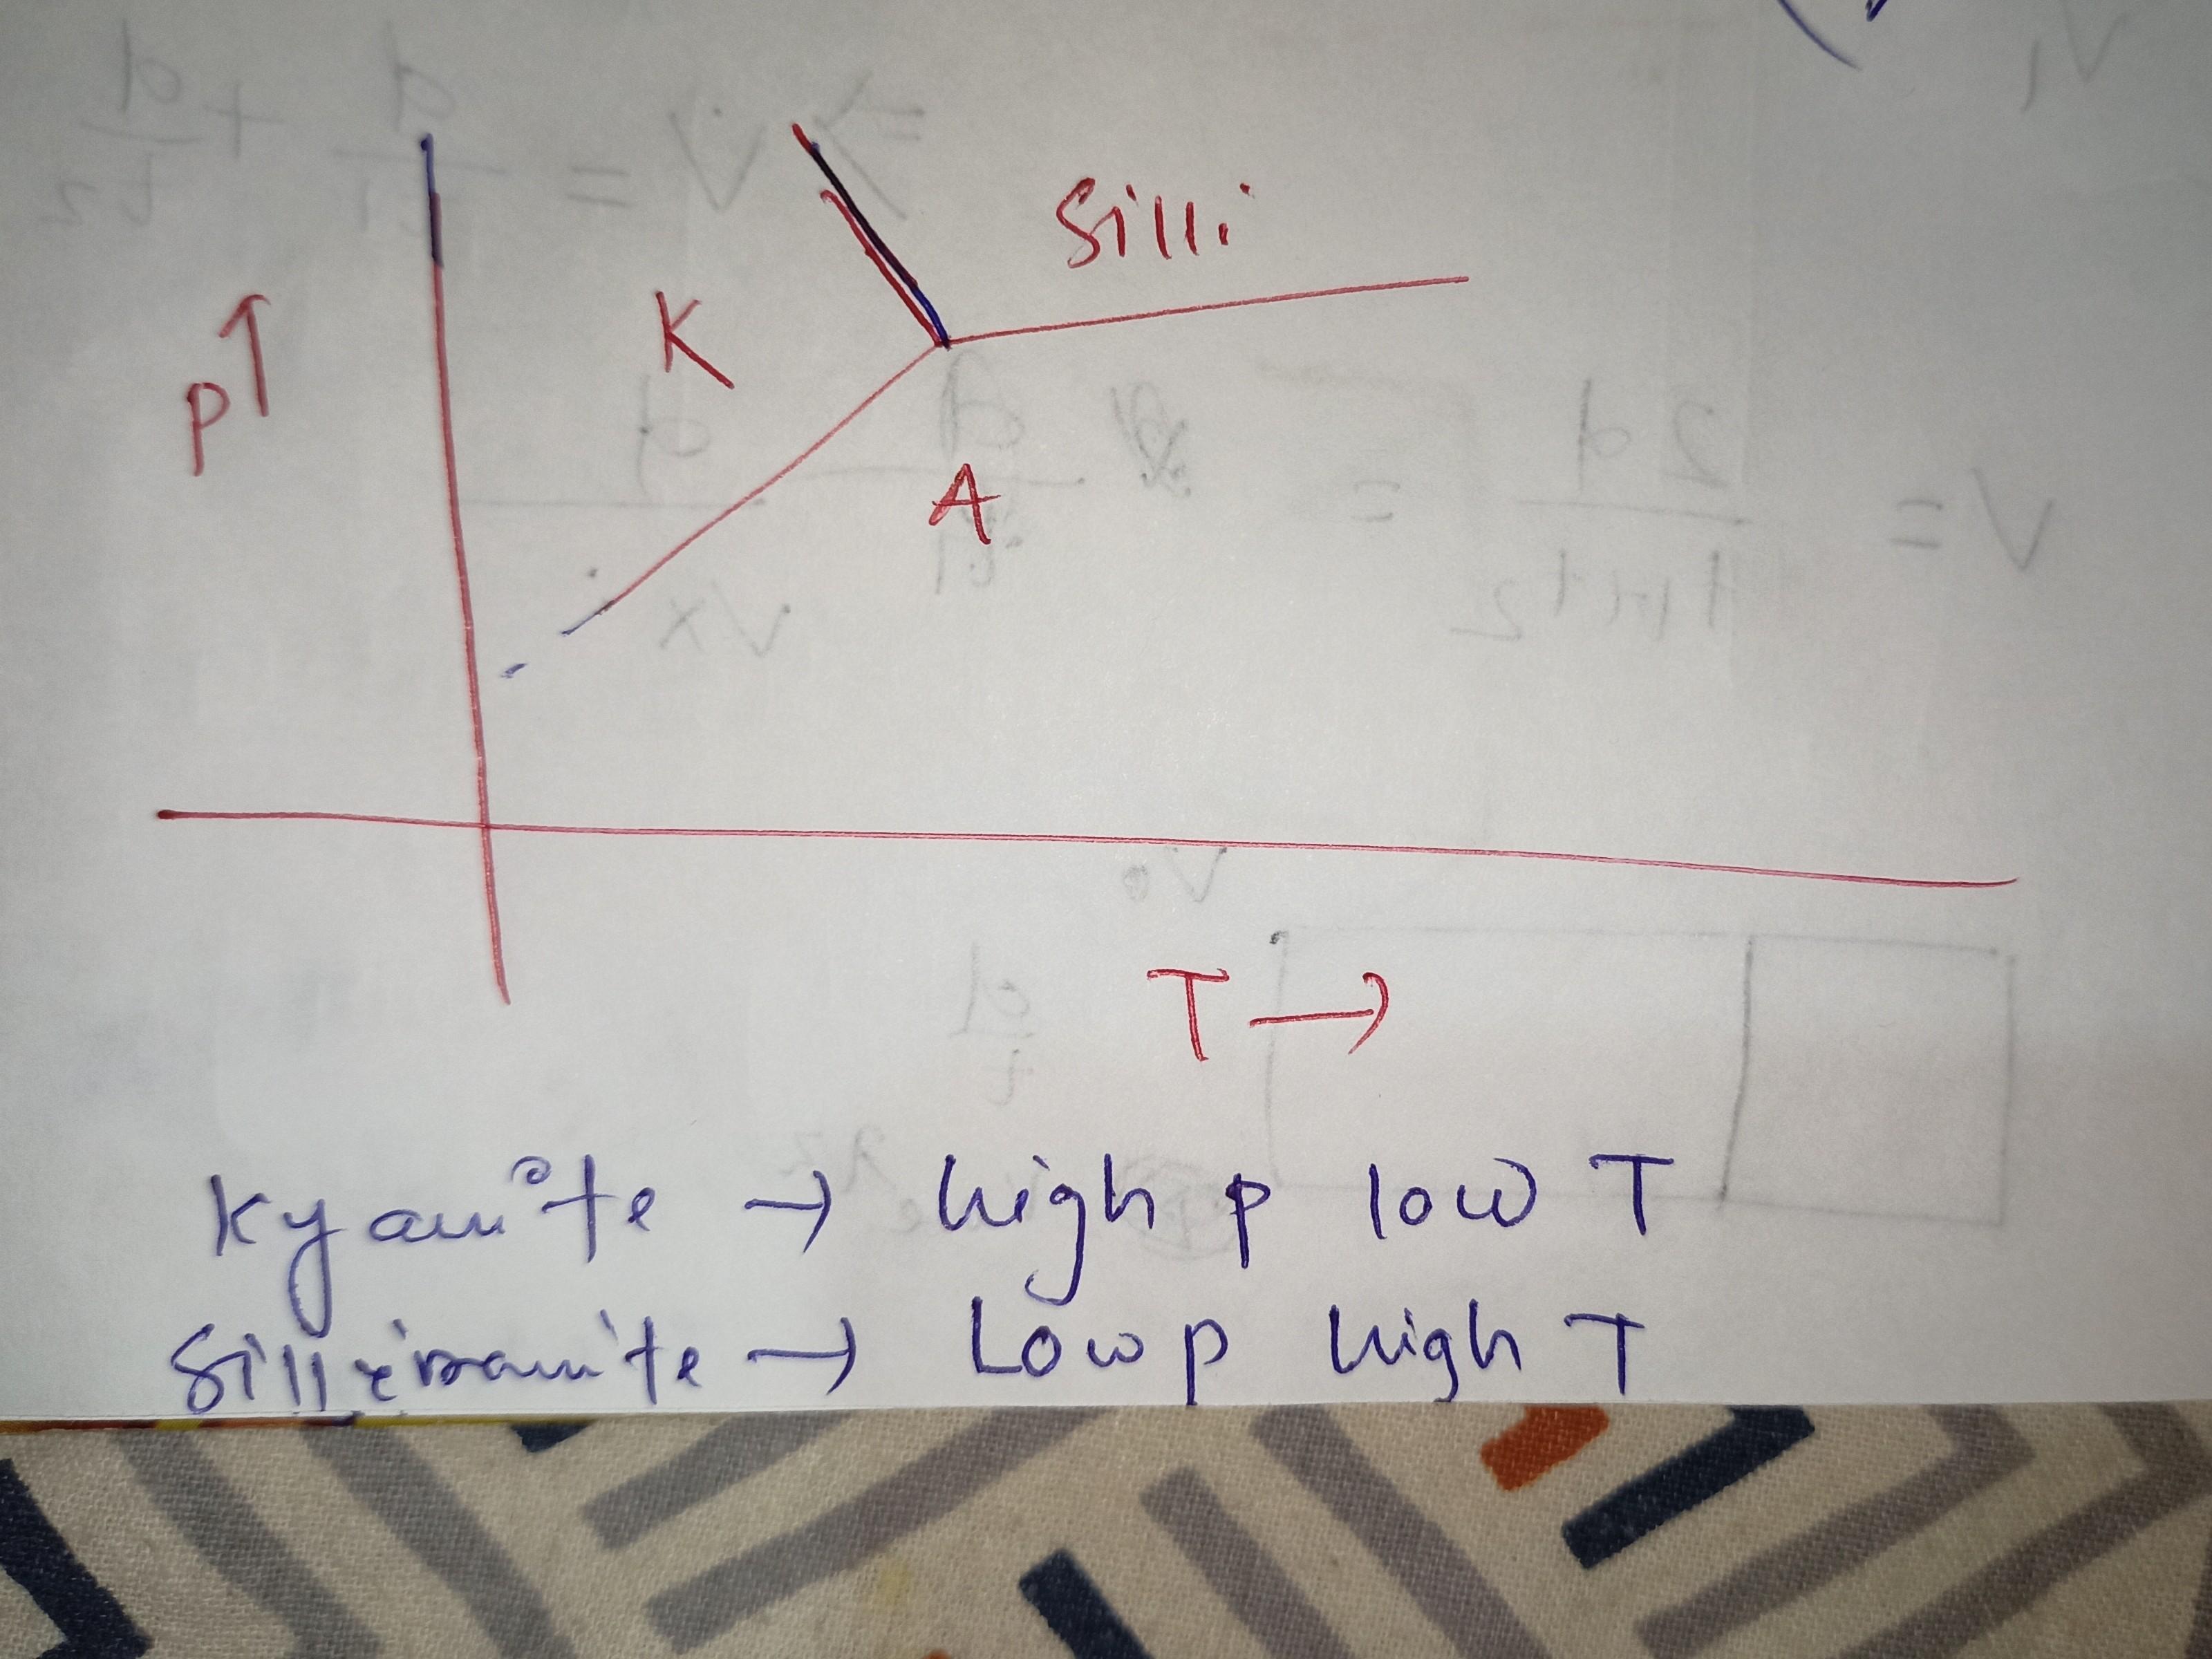 Silli
K
P↑
A
T→
Kyanite → high p low T
Sillimanite → Low p high T